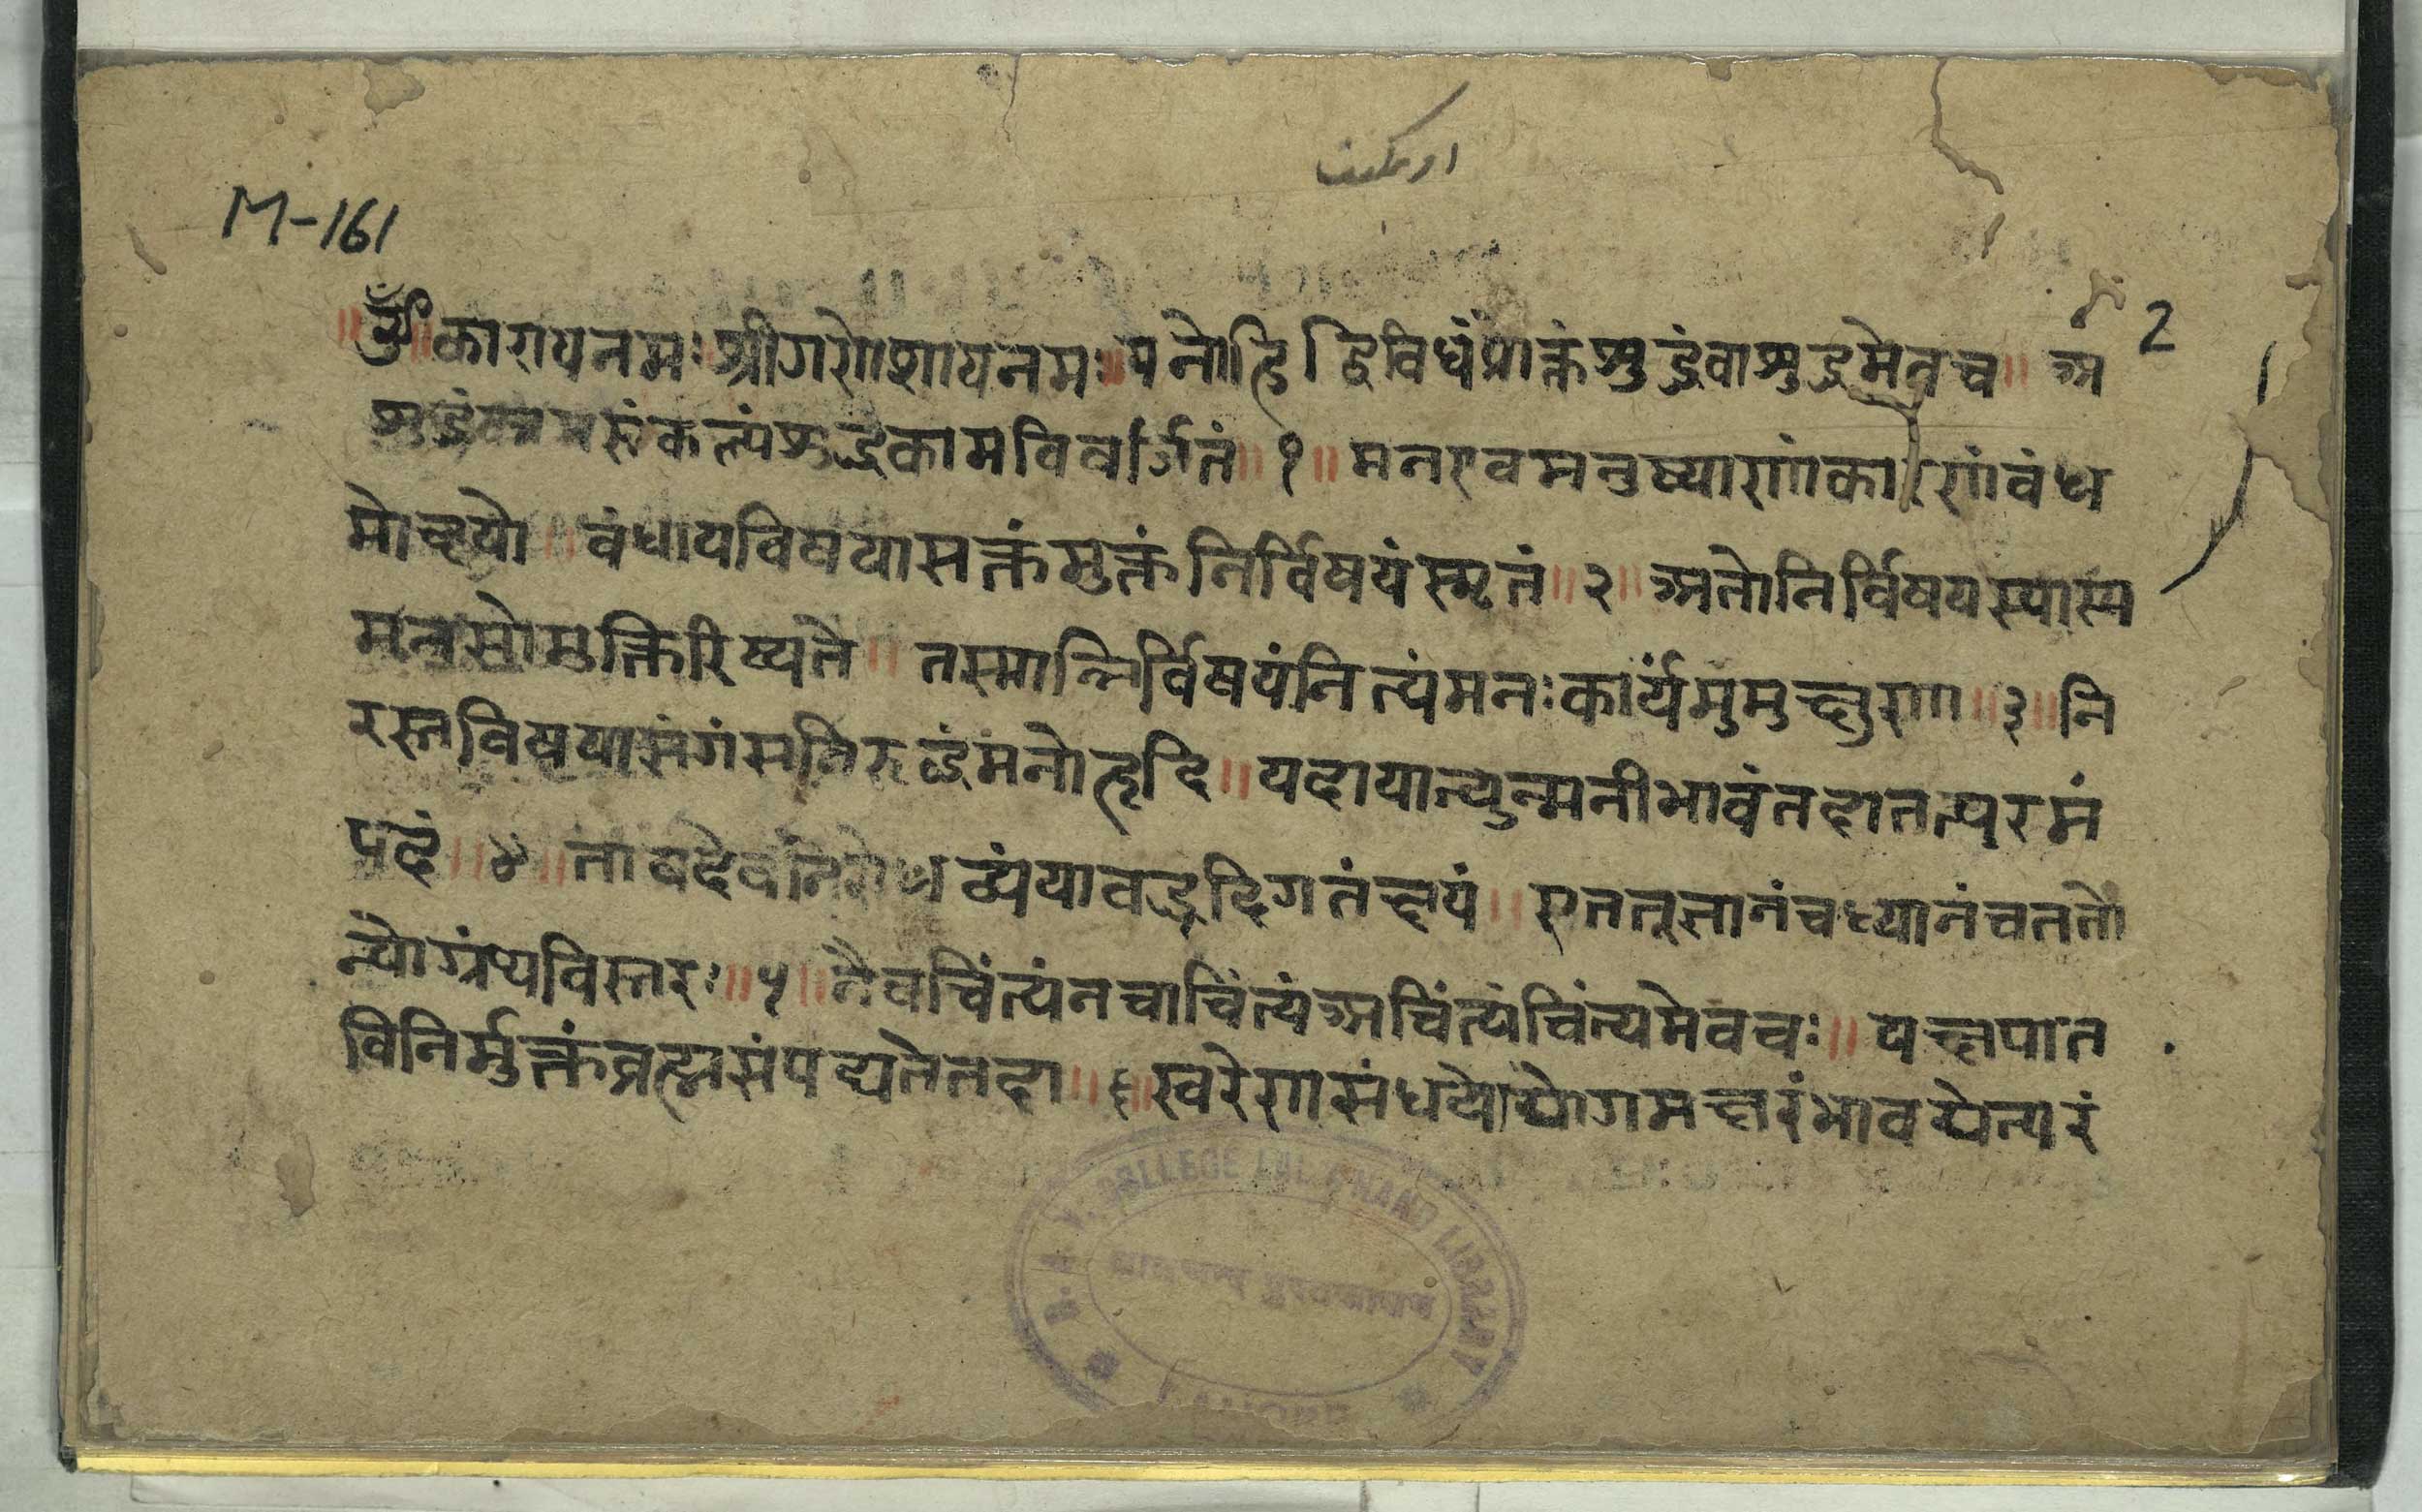 M-161
2
॥ॐ॥कारायनमःश्रीगणेशायनमः॥मनोहिद्विविधंप्रोक्तंशुद्धंवाशुद्धमेवच॥अ
शुद्धंकामसंकल्पंशुद्धंकामविवर्जितं॥१॥मनएवमनुष्याणांकारणंबंध
मोक्षयो॥बंधायविषयासक्तंमुक्तंनिर्विषयंस्मृतं॥२॥अतोनिर्विषयस्यास्य
मनसोमुक्तिरिष्यते॥तस्मान्निर्विषयंनित्यंमनःकार्यंमुमुक्षुणा॥३॥नि
रस्तविषयासंगंसनिरूद्धंमनोहृदि॥यदायात्युन्मनीभावंतदातत्परमं
पदं॥४॥तावदेवनिरोधव्यंयावद्धृदिगतंक्षयं॥एतत्ज्ञानंचध्यानंचततो
न्योग्रंथविस्तरः॥५॥नैवचिंत्यंनचाचिंत्यंअचिंत्यंचिंत्यमेवचः॥पक्षपात
विनिर्मुक्तंब्रह्मसंपद्यतेतदा॥६॥स्वरेणसंधयेद्योगमक्षरंभावयेत्परं
D.A.V. COLLEGE LAL CHAND LIBRARY
लालचन्द पुस्तकालय
LAHORE